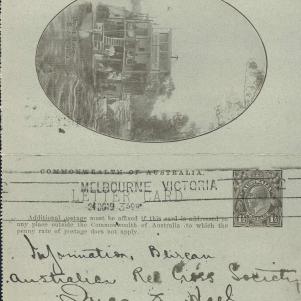 COMMONWEALTH OF AUSTRALIA.
MELBOURNE VICTORIA
LETTER CARD.
Additional postage must be affixed if this card is addressed to
any place outside the Commonwealth of Australia to which the
penny rate of postage does not apply.
Information Bureau
Australian Red Cross Society